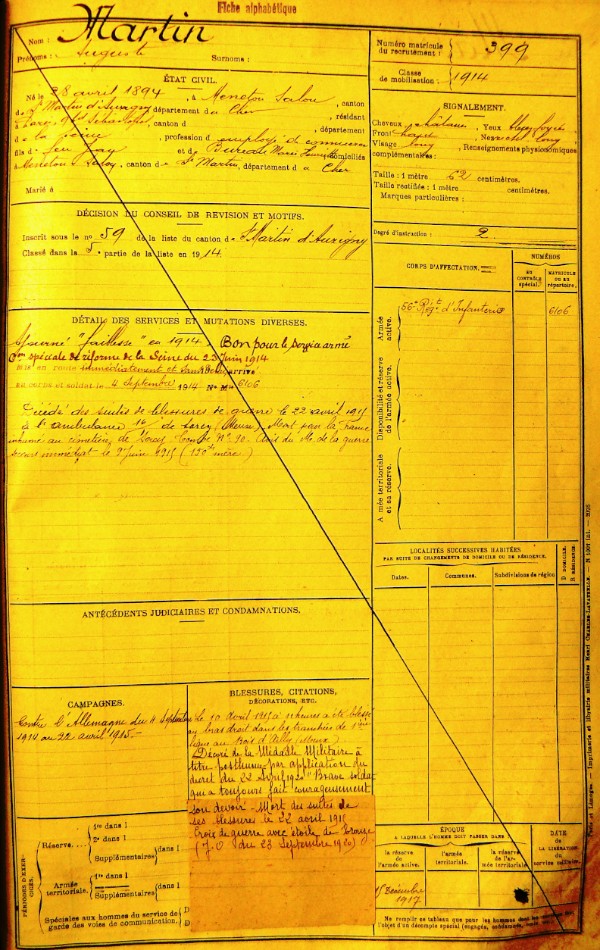 Fiche alphabétique
Nom : Martin
Prénoms : Auguste Surnoms :
ÉTAT CIVIL.
Né le 28 avril 1894, à Menetou Salon, canton
de St Martin d'Auxigny, département du Cher, résidant
à Paris, département
de la Seine, profession d'employé de commerce
fils de feu et de Bureau Marie domiciliés
à Menetou Salon, canton de St Martin, département d Cher
Marié à
DÉCISION DU CONSEIL DE REVISION ET MOTIFS.
Inscrit sous le no 59 de la liste du canton de St Martin d'Auxigny
Classé dans la 5e partie de la liste en 1914.
DÉTAIL DES SERVICES ET MUTATIONS DIVERSES.
Ajourné "faiblesse" en 1914. Bon pour le service armé
Con spéciale de réforme de la Seine du 23 Juin 1914
mis en route immédiatement et sans délai, arrivé
au corps et soldat le 4 septembre 1914 No Mle 6106
Décédé des suites de blessures de guerre le 22 avril 1915
à l'ambulance 16 de Sorcy (Meuse). Mort pour la France
inhumé au cimetière de Sorcy Tombe No 90. Avis du M. de la guerre
secours immédiat le 9 Juin 1915 (150f mère)
ANTÉCÉDENTS JUDICIAIRES ET CONDAMNATIONS.
CAMPAGNES.
Contre l'Allemagne du 4 Septembre
1914 au 22 avril 1915.-
BLESSURES, CITATIONS,
DÉCORATIONS, ETC.
Le 10 avril 1915 à 11 heures a été blessé
au bras droit dans les tranchées de 1ère
ligne au Bois d'Ailly (Meuse)
Décoré de la Médaille Militaire à
titre posthume par application du
décret du "Brave soldat
qui a toujours fait courageusement
son devoir. Mort des suites de
ses blessures le 22 avril 1915
Croix de guerre avec étoile de bronze
(J.O du 23 Septembre 1920)
PÉRIODES D'EXERCICES.
Réserve.
1re dans l
2e dans l
Supplémentaires dans l
Armée territoriale.
1re dans l
Supplémentaires dans l
Spéciales aux hommes du service de
garde des voies de communication.
D
D
Numéro matricule
du recrutement : 399
Classe
de mobilisation : 1914
SIGNALEMENT.
Cheveux châtains, Yeux
Front haut, Nez long
Visage long, Renseignements physionomiques
complémentaires :
Taille : 1 mètre 62 centimètres.
Taille rectifiée : 1 mètre centimètres.
Marques particulières :
Degré d'instruction : 2
CORPS D'AFFECTATION.
NUMÉROS
AU CONTRÔLE spécial.
MATRICULE OU AU répertoire.
Armée active.
56e Régt d'Infanterie 6106
Disponibilité et réserve de l'armée active.
Armée territoriale et sa réserve.
LOCALITÉS SUCCESSIVES HABITÉES.
PAR SUITE DE CHANGEMENTS DE DOMICILE OU DE RÉSIDENCE.
Dates. Communes. Subdivisions de région
D DOMICILE.
R RÉSIDENCE.
ÉPOQUE
À LAQUELLE L'HOMME DOIT PASSER DANS
la réserve de l'armée active.
l'armée territoriale.
la réserve de l'armée territoriale.
DATE
DE LA LIBÉRATION du service militaire.
15 Décembre
1917
Ne remplir ce tableau que pour les hommes
l'objet d'un décompte spécial (engagés,
Paris et Limoges. — Imprimerie et librairie militaires Henri CHARLES-LAVAUZELLE.